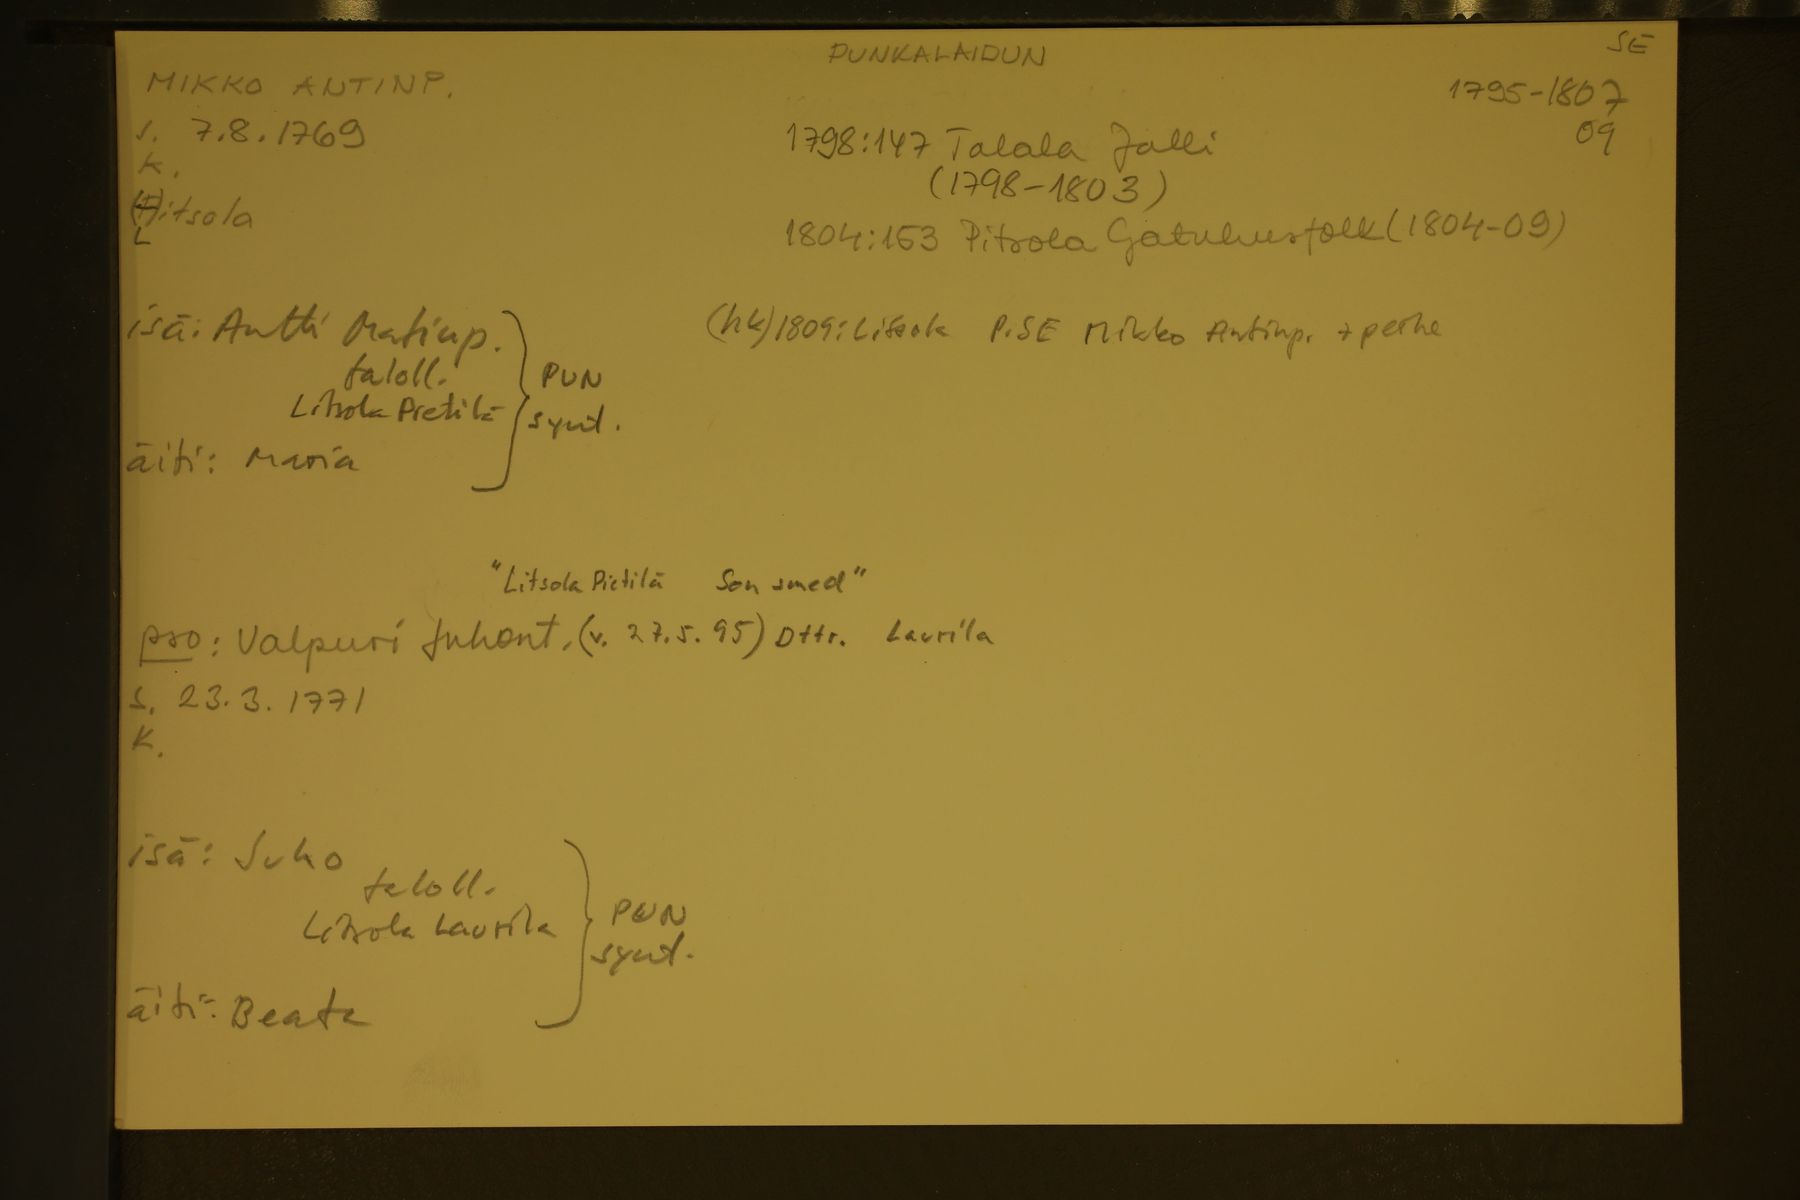 PUNKALAIDUN
SE
MIKKO ANTINP.
1795-1807
09
s. 7.8.1769
k.
itsola
L
1798:147 Talala Jalli
(1798-1803)
1804:153 Pitsola Gatuhusfolk (1804-09)
isä: Antti Matinp.
taloll.
Litsola Pietilä
PUN
synt.
äiti: Maria
(hk) 1809: Litsola P.SE Mikko Antinp. + perhe
"Litsola Pietilä Son smed"
pso: Valpuri Juhont. (v. 27.5.95) Dttr. Laurila
s. 23.3.1771
k.
isä: Juho
taloll.
Litsola Laurila
PUN
synt.
äiti: Beata